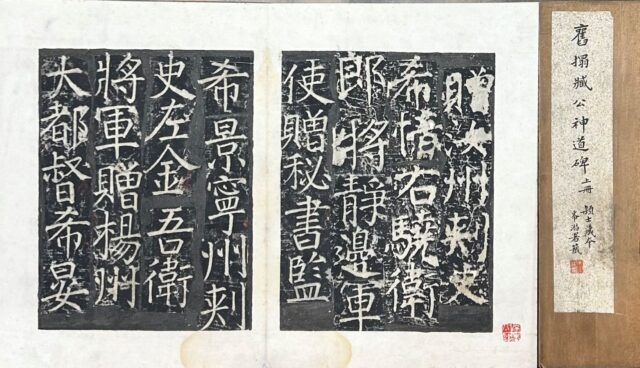 舊搨臧公神道碑上冊
贈汝州刺史
希愔右驍衛
郎將靜邊軍
使贈秘書監
希景寧州刺
史左金吾衛
將軍贈揚州
大都督希晏